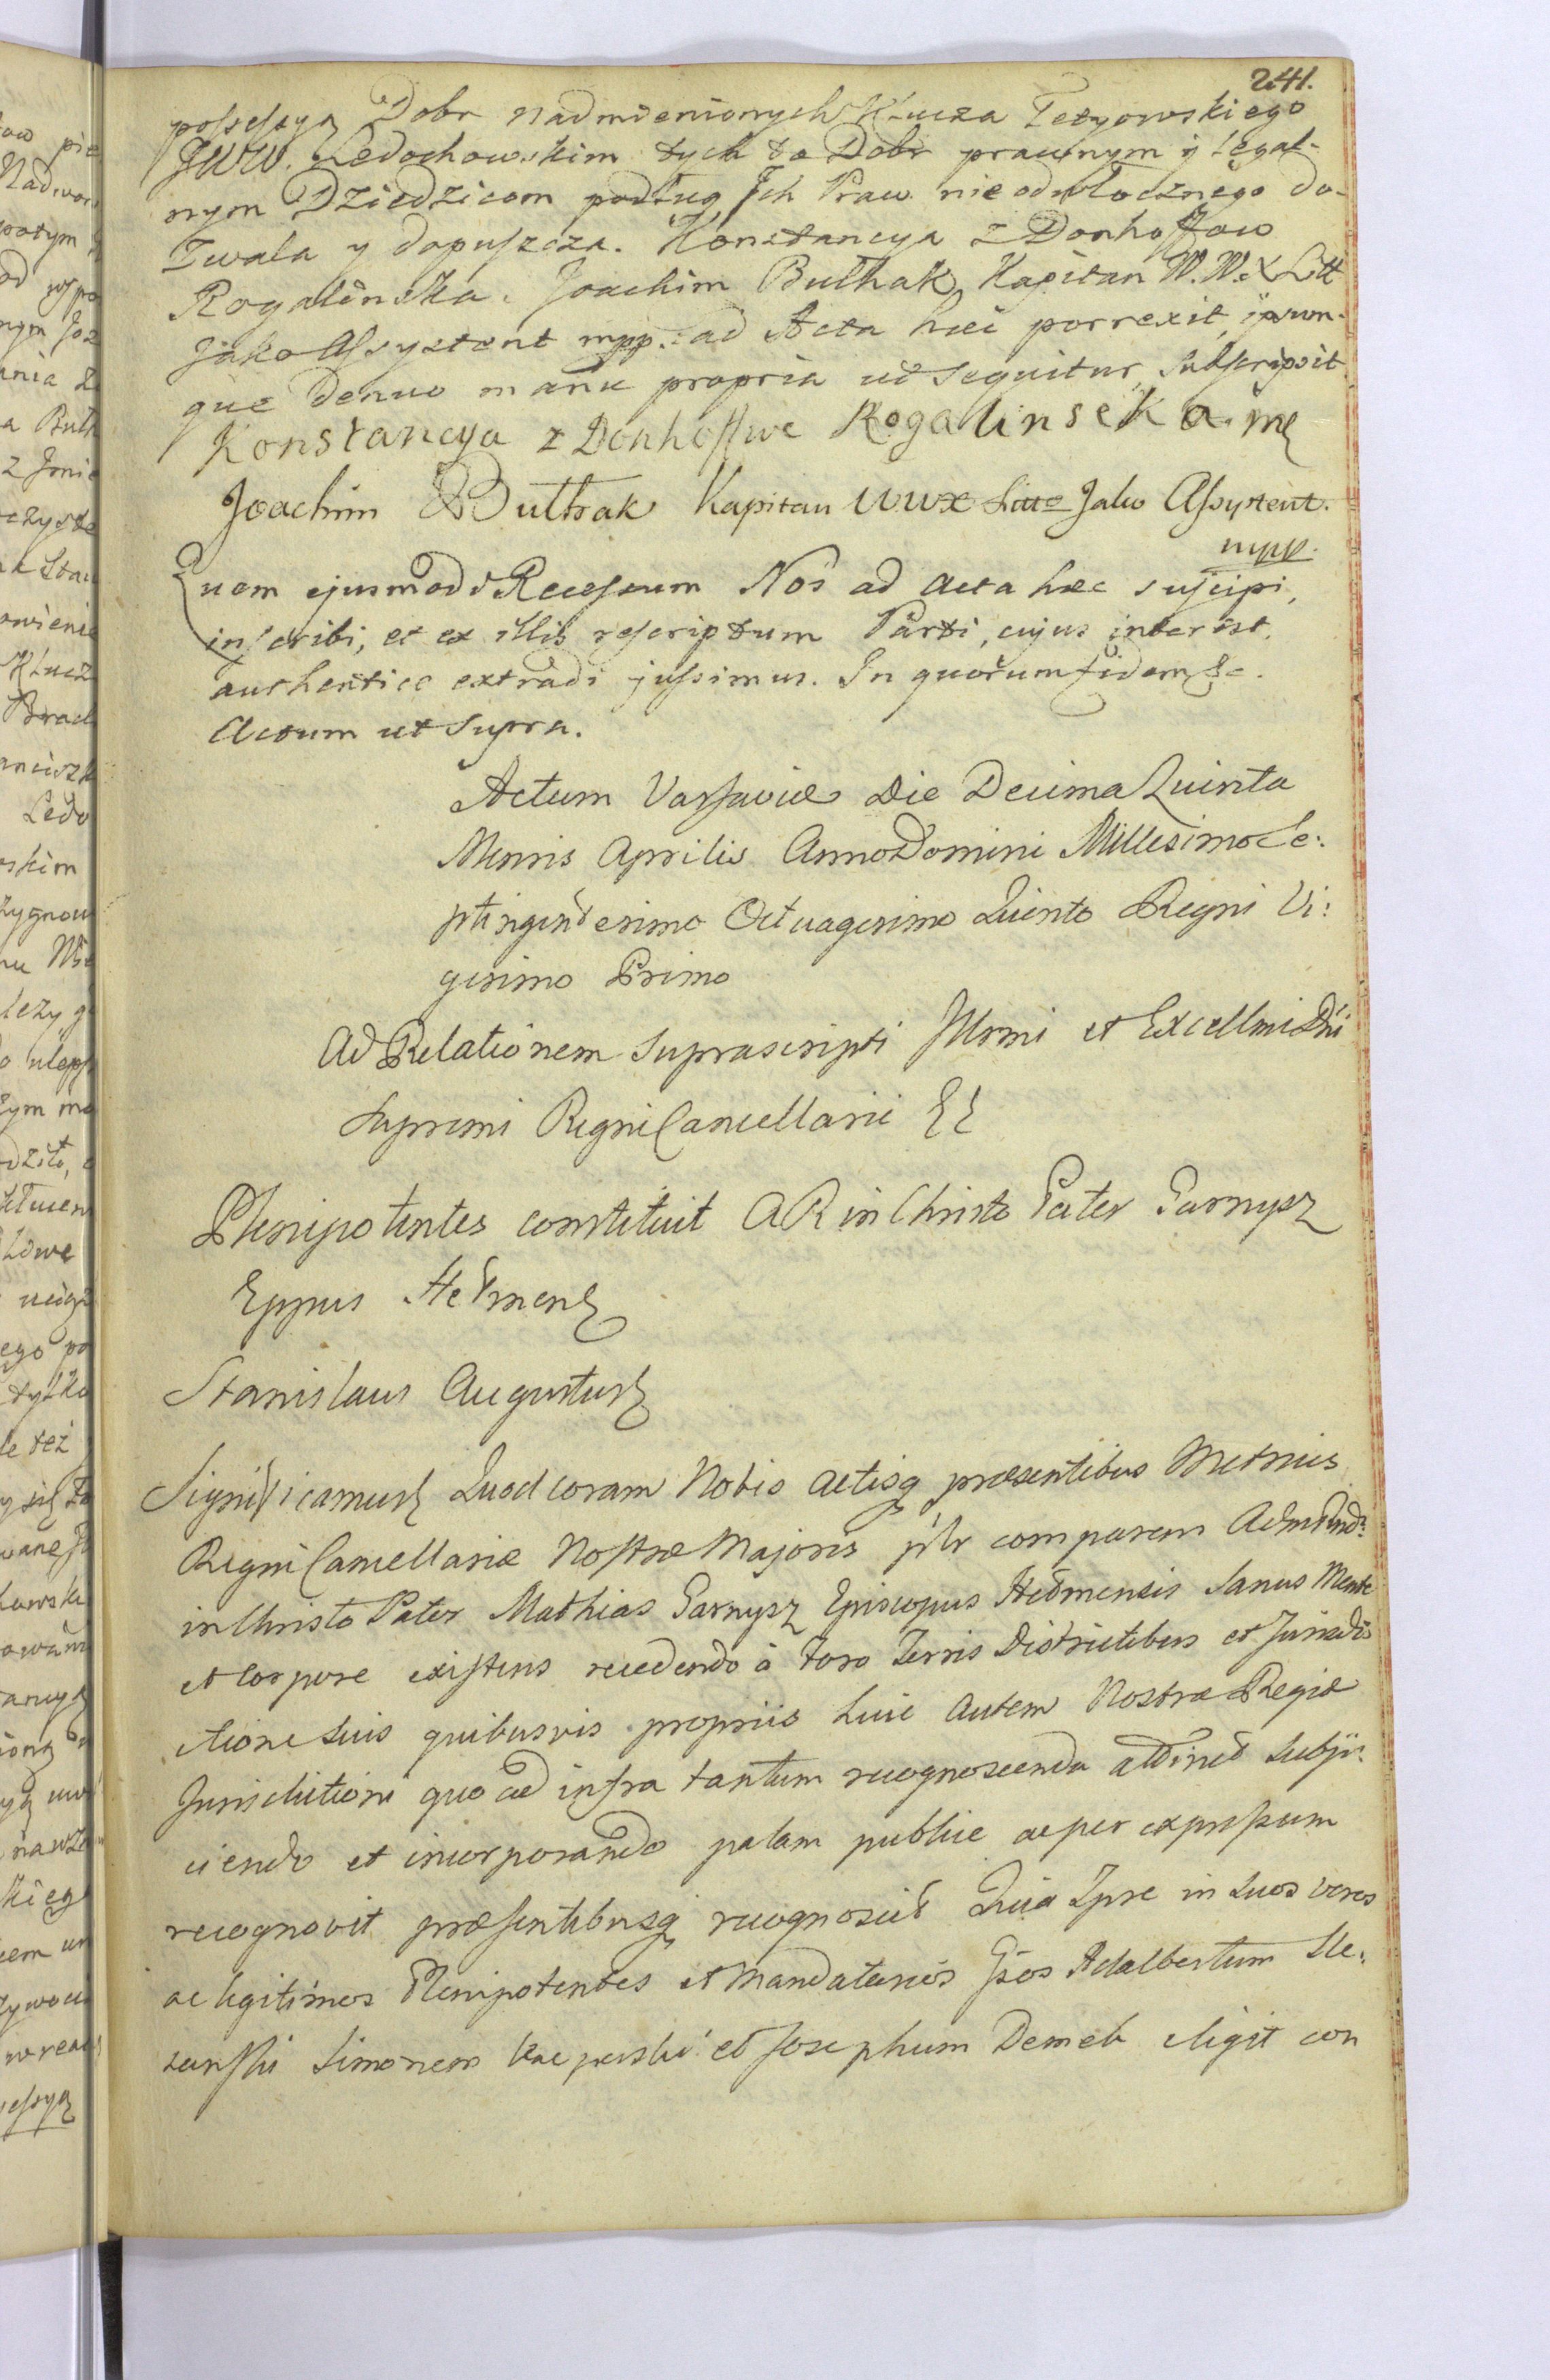 241.
possessyą Dobr nadmienionych Klucza Tetyowskiego
JWW. Ledochowskim tych to Dobr prawnym y legal-
nym Dziedzicom podług Ich Praw nieodwłocznego do-
zwala y dopuszcza. Konstancya z Donhoffow
Rogalinska. Joachim Bułhak Kapitan W. W. X Litt
jako Assystent mpp. ad Acta haec porrexit, ipsum-
que denuo manu propria ut sequitur, subscripsit
Konstancya z Donhoffwe Rogalinseka mę
Joachim Bułhak Kapitan WWX Litto Jako Assystent.
mpp.
Quem ejusmodi Recessum Nos ad acta haec suscipi,
inscribi, et ex illis rescriptum Parti, cujus interest,
authentice extradi jussimus. In quorum fidem &c.
Actum ut supra.
Actum Varsaviae Die Decima Quinta
Mensis Aprilis Anno Domini Millesimo Se:
ptingentesimo Octuagesimo Quinto Regni Vi:
gesimo Primo
Ad Relationem suprascripti Illrmi et Excellmi Dni
Supremi Regni Cancellarii
Plenipotentes constituit AR in Christo Pater Garnysz
Eppus Hełmens
Stanislaus Augustus
Significamus Quod coram Nobis Actisq praesentibus Metrices
Regni Cancellariae Nostrae Majoris plr comparens Admdum Rndus
in Christo Pater Mathias Garnysz Episcopus Hełmensis Sanus Mente
et Corpore existens recedendo à Foro Terris Districtibus et Jurisdi
ctione suis quibusvis propriis huic autem Nostrae Regiae
Jurisdictioni quo ad infra tantum recognoscenda attinet subjii:
ciendo et incorporando palam publice ac per expressum
recognovit praesentibusq recognoscit Quia Ipse in suos veros
ac legitimos Plenipotentes et Mandatarios Gsos Adalbertum
Simonem et Josephum Demeb eligit con